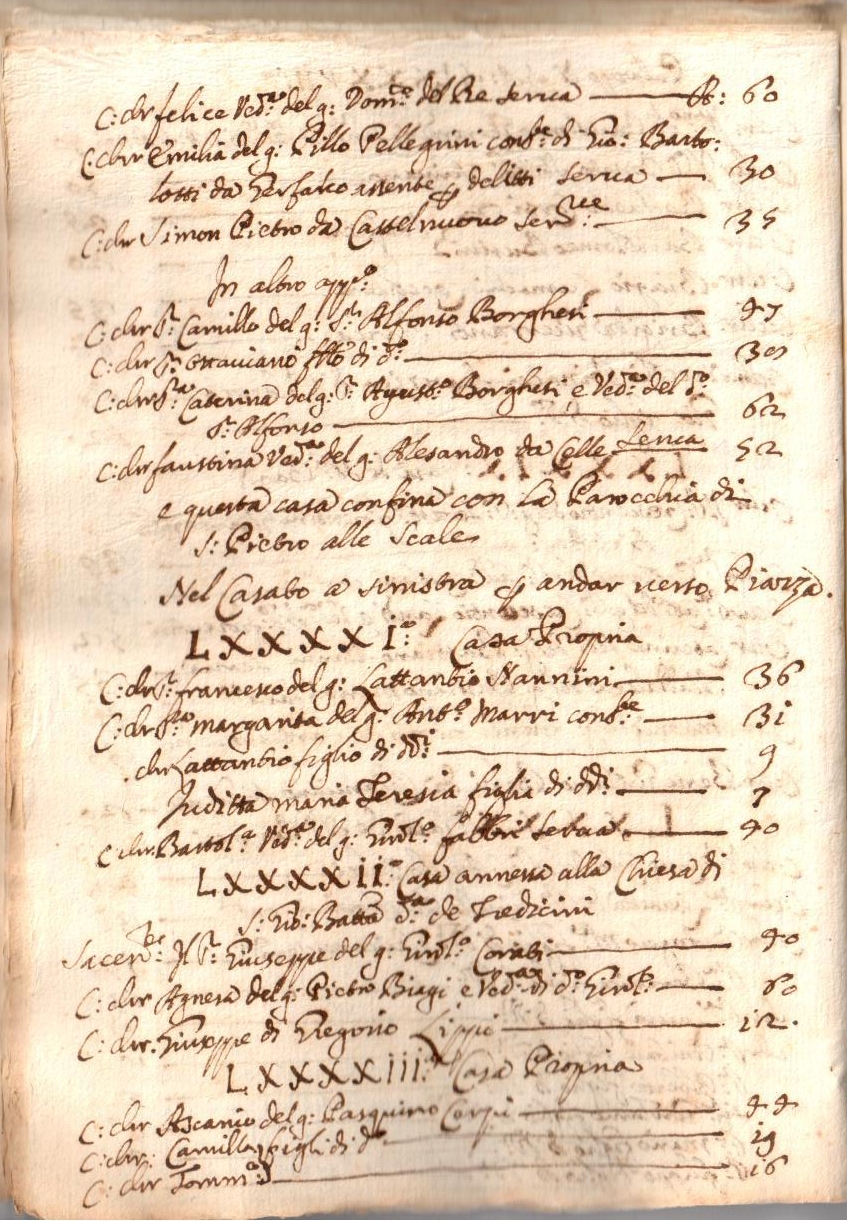 C: chr felice Ved.ª del q: Dom.co del Re serua — A: 60
C: chr Emilia del q: Pillo Pellegrini cons.te di Gio: Barto:
lotti da Gerfalco assente p delitti serua — 30
C: chr Simon Pietro da Castelnuouo ser.re: — 35
In altro app.to
C: chr S.r Camillo del q: S.r Alfonso Borghesi — 47
C: chr S.r Ottauiano fllo di d.o — 30
C: chr S.ra Caterina del q: S.r Agust.o Borghesi, e Ved.ª del d.o
S.r Alfonso — 62
C: chr faustina Ved.ª del q: Alesandro da Celle serua 52
e questa casa confina con la Parochia di
S: Pietro alle Scale
Nel Casato a sinistra p andar uerso Piazza.
LXXXXI.a Casa Propria
C: chr S.r francesco del q: Lattantio Nannini — 36
C: chr S.ra margarita del q: Ant.o Marri cons.te — 31
chr Lattantio figlio di dd.i — 9
Juditta maria Teresia figlia di dd.i — 7
C: chr Bartol.a Ved.ª del q: Girol.o fabbri serua — 40
LXXXXII.a Casa annessa alla Chiesa di
S: Gio: Batta d.a de Tredicini
Sacer.te Il S.r Giuseppe del q: Girol.o Corati — 40
C: chr Agnesa del q: Pietro Biagi e Ved.ª di d.o Girol.o — 60
C: chr Giuseppe di Gregorio Lippi — 12.
LXXXXIII.a Casa Propria
C: chr Ascanio del q: Pasquino Corpi — 44
C: chr: Camilla } figli di d.o — 19
C: chr Tomm.o } — 16